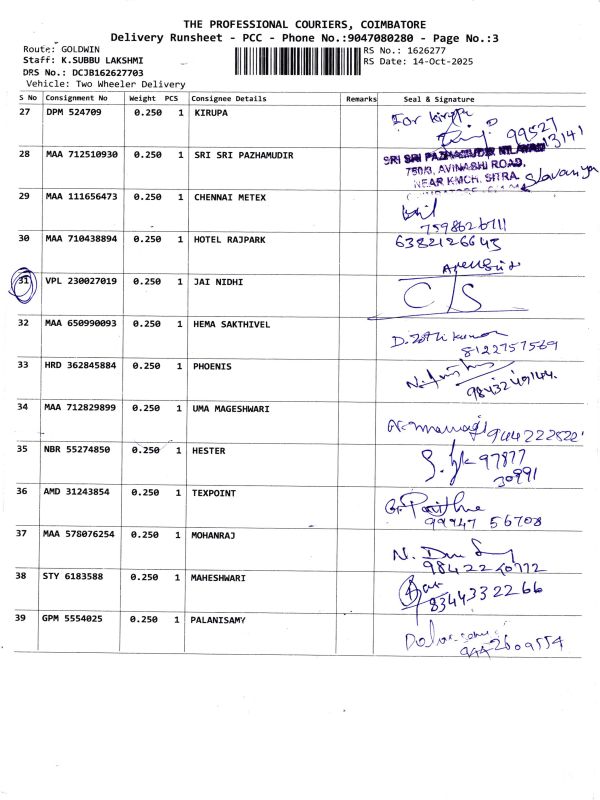 THE PROFESSIONAL COURIERS, COIMBATORE
Delivery Runsheet - PCC - Phone No.:9047080280 - Page No.:3
Route: GOLDWIN
RS No.: 1626277
Staff: K.SUBBU LAKSHMI
RS Date: 14-Oct-2025
DRS No.: DCJB162627703
Vehicle: Two Wheeler Delivery
S No Consignment No Weight PCS Consignee Details Remarks Seal & Signature
27 DPM 524709 0.250 1 KIRUPA For kirupa
99527
13141
28 MAA 712510930 0.250 1 SRI SRI PAZHAMUDIR SRI SRI PAZHAMUDIR NILAYAM
750/3, AVINASHI ROAD,
NEAR KMCH, SITRA.
29 MAA 111656473 0.250 1 CHENNAI METEX
7598626711
30 MAA 710438894 0.250 1 HOTEL RAJPARK 6382126645
31 VPL 230027019 0.250 1 JAI NIDHI
32 MAA 650990093 0.250 1 HEMA SAKTHIVEL
8122757569
33 HRD 362845884 0.250 1 PHOENIS
34 MAA 712829899 0.250 1 UMA MAGESHWARI
35 NBR 55274850 0.250 1 HESTER 97877
30991
36 AMD 31243854 0.250 1 TEXPOINT
99947 56708
37 MAA 578076254 0.250 1 MOHANRAJ
38 STY 6183588 0.250 1 MAHESHWARI
8344332266
39 GPM 5554025 0.250 1 PALANISAMY
9442609554